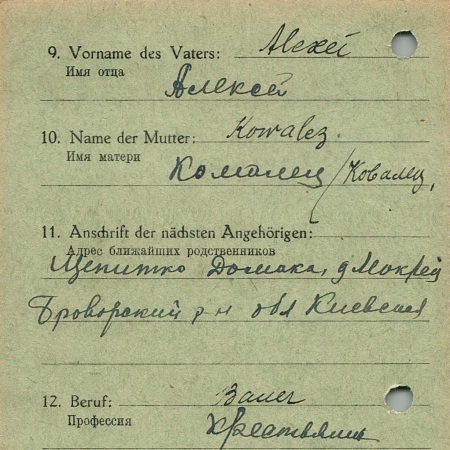 9. Vorname des Vaters: Alexei
Имя отца
Алексей
10. Name der Mutter: Kowalez.
Имя матери
Комалец /Ковалец,
11. Anschrift der nächsten Angehörigen:
Адрес ближайших родственников
Домаха, д Мокрец
Броворский р-н обл Киевская
12. Beruf: Bauer
Профессия
Крестьянин